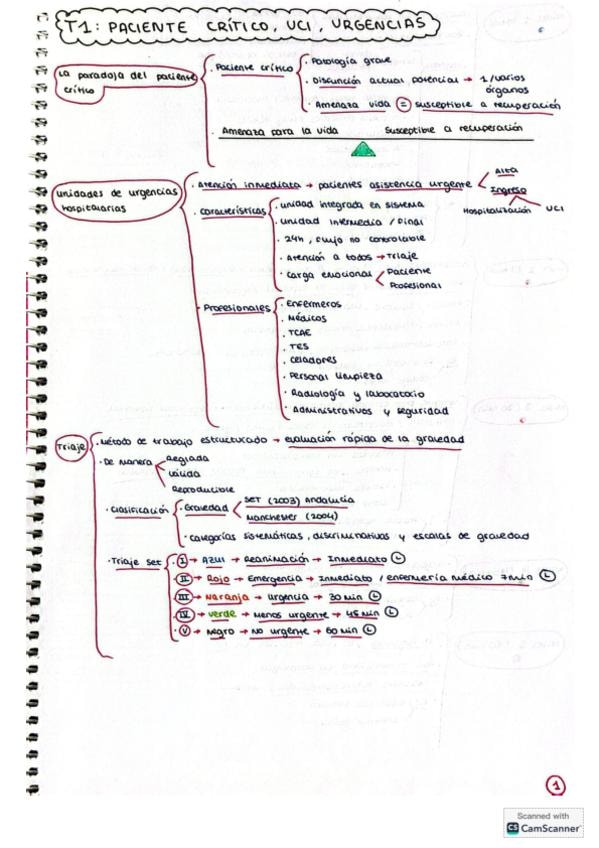 T1: PACIENTE CRÍTICO, UCI, URGENCIAS
La paradoja del paciente crítico
· Paciente crítico
· Patología grave
· Disfunción actual, potencial → 1/varios órganos
· Amenaza vida = susceptible a recuperación
· Amenaza para la vida Susceptible a recuperación
Unidades de urgencias hospitalarias
· Atención inmediata → pacientes asistencia urgente
Alta
Ingreso
Hospitalización UCI
· Características
· unidad integrada en sistema
· unidad intermedia / final
· 24h, flujo no controlable
· Atención a todos → Triaje
· Carga emocional
Paciente
Profesional
· Profesionales
· Enfermeros
· Médicos
· TCAE
· TES
· Celadores
· Personal limpieza
· Radiología y laboratorio
· Administrativos y seguridad
Triaje
· Método de trabajo estructurado → evaluación rápida de la gravedad
· De manera
Reglada
Válida
Reproducible
· Clasificación
· Gravedad
SET (2003) Andalucía
Manchester (2004)
· Categorías sistemáticas, discriminativos y escalas de gravedad
· Triaje SET
· I → AZUL → Reanimación → Inmediato
· II → Rojo → Emergencia → Inmediato / enfermería médico 7 min
· III → Naranja → Urgencia → 30 min
· IV → verde → Menos urgente → 45 min
· V → Negro → No urgente → 60 min
1
Scanned with
CS CamScanner